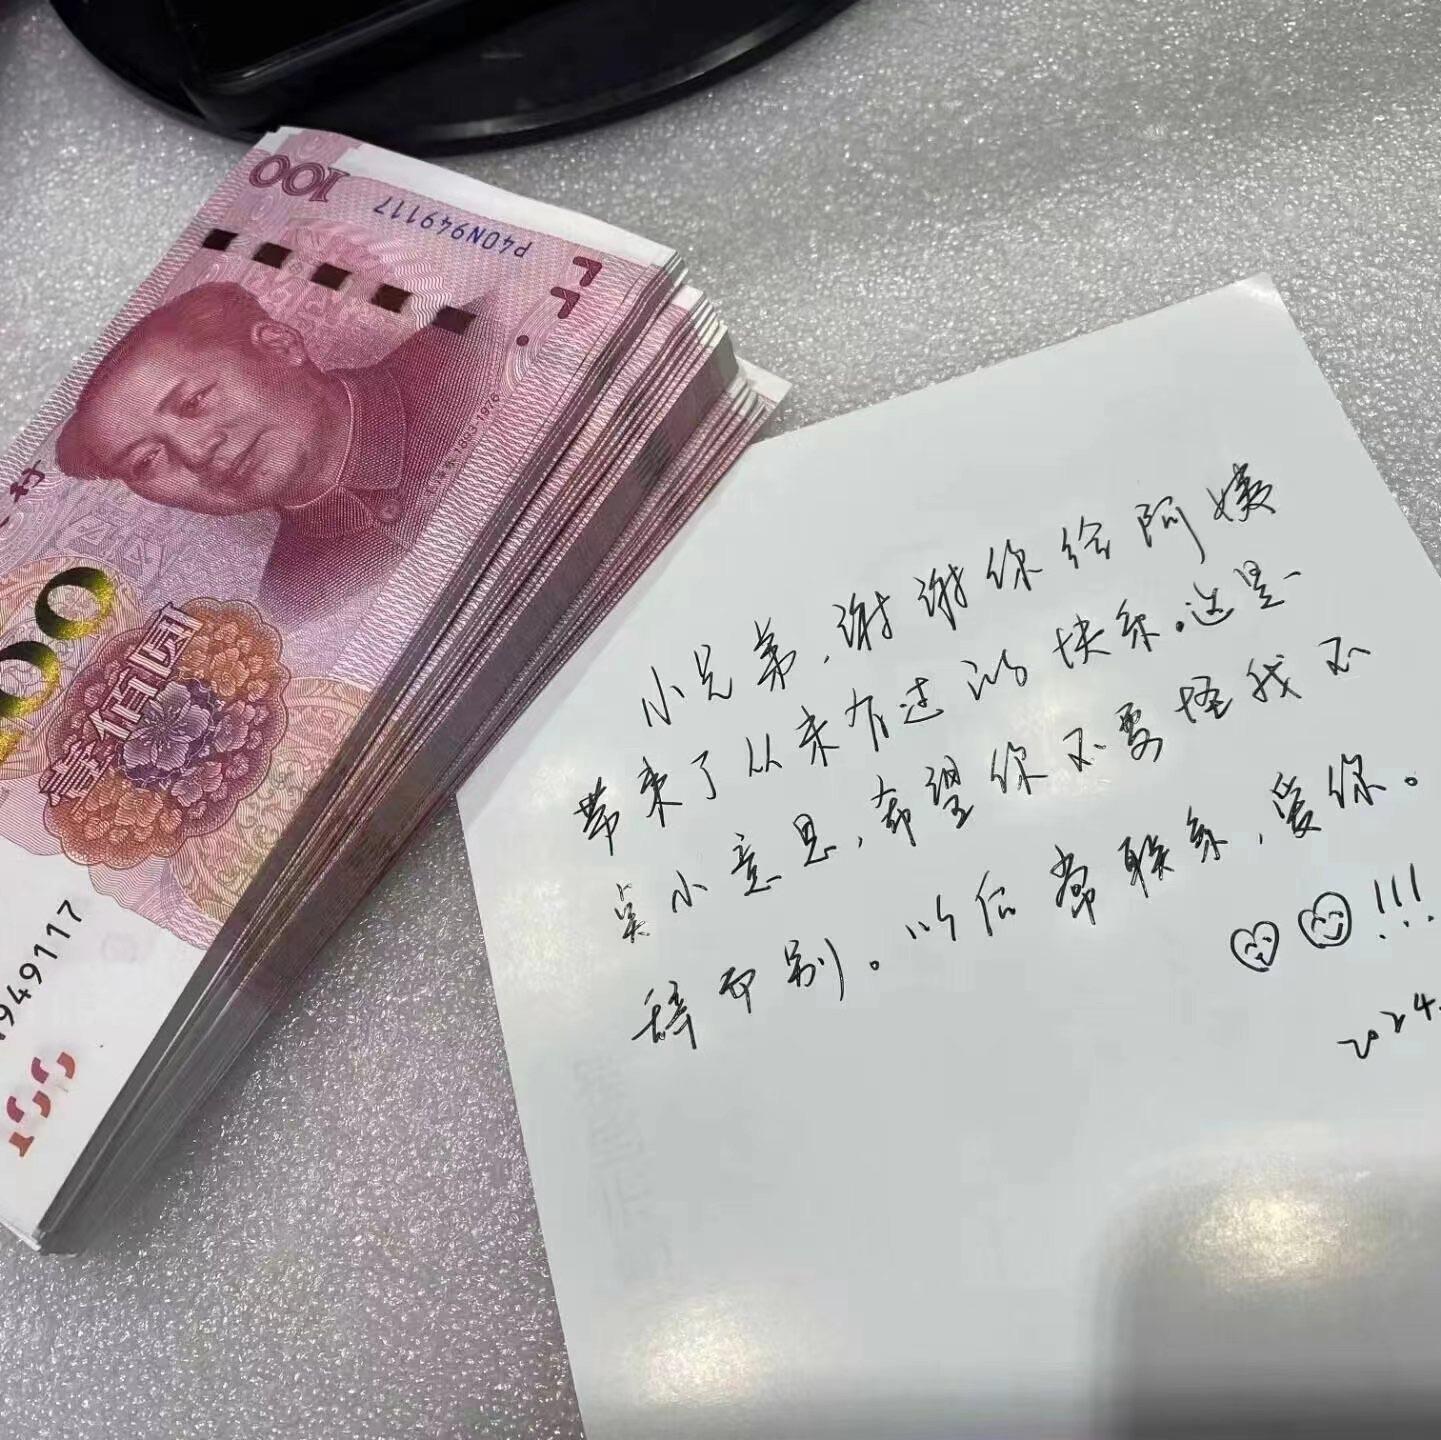 100
P40N949117
毛泽东 1893-1976
100
壹佰圆
949117
100
小兄弟,谢谢你给阿姨
带来了从来有过的快乐。这是一
点小意思,希望你不要怪我不
辞而别。以后常联系,爱你。
!!!
2024.